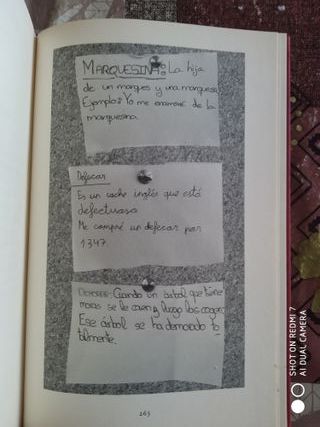 MARQUESINA: La hija
de un marques y una marquesa.
Ejemplo: Yo me enamoré de la
marquesina.
Defecar
Es un coche inglés que está
defectuoso
Me compré un defecar por
1347.
Cuando un árbol que tiene
moras se le caen y luego las coges.
Ese árbol se ha demorado to-
talmente.
263
SHOT ON REDMI 7
AI DUAL CAMERA